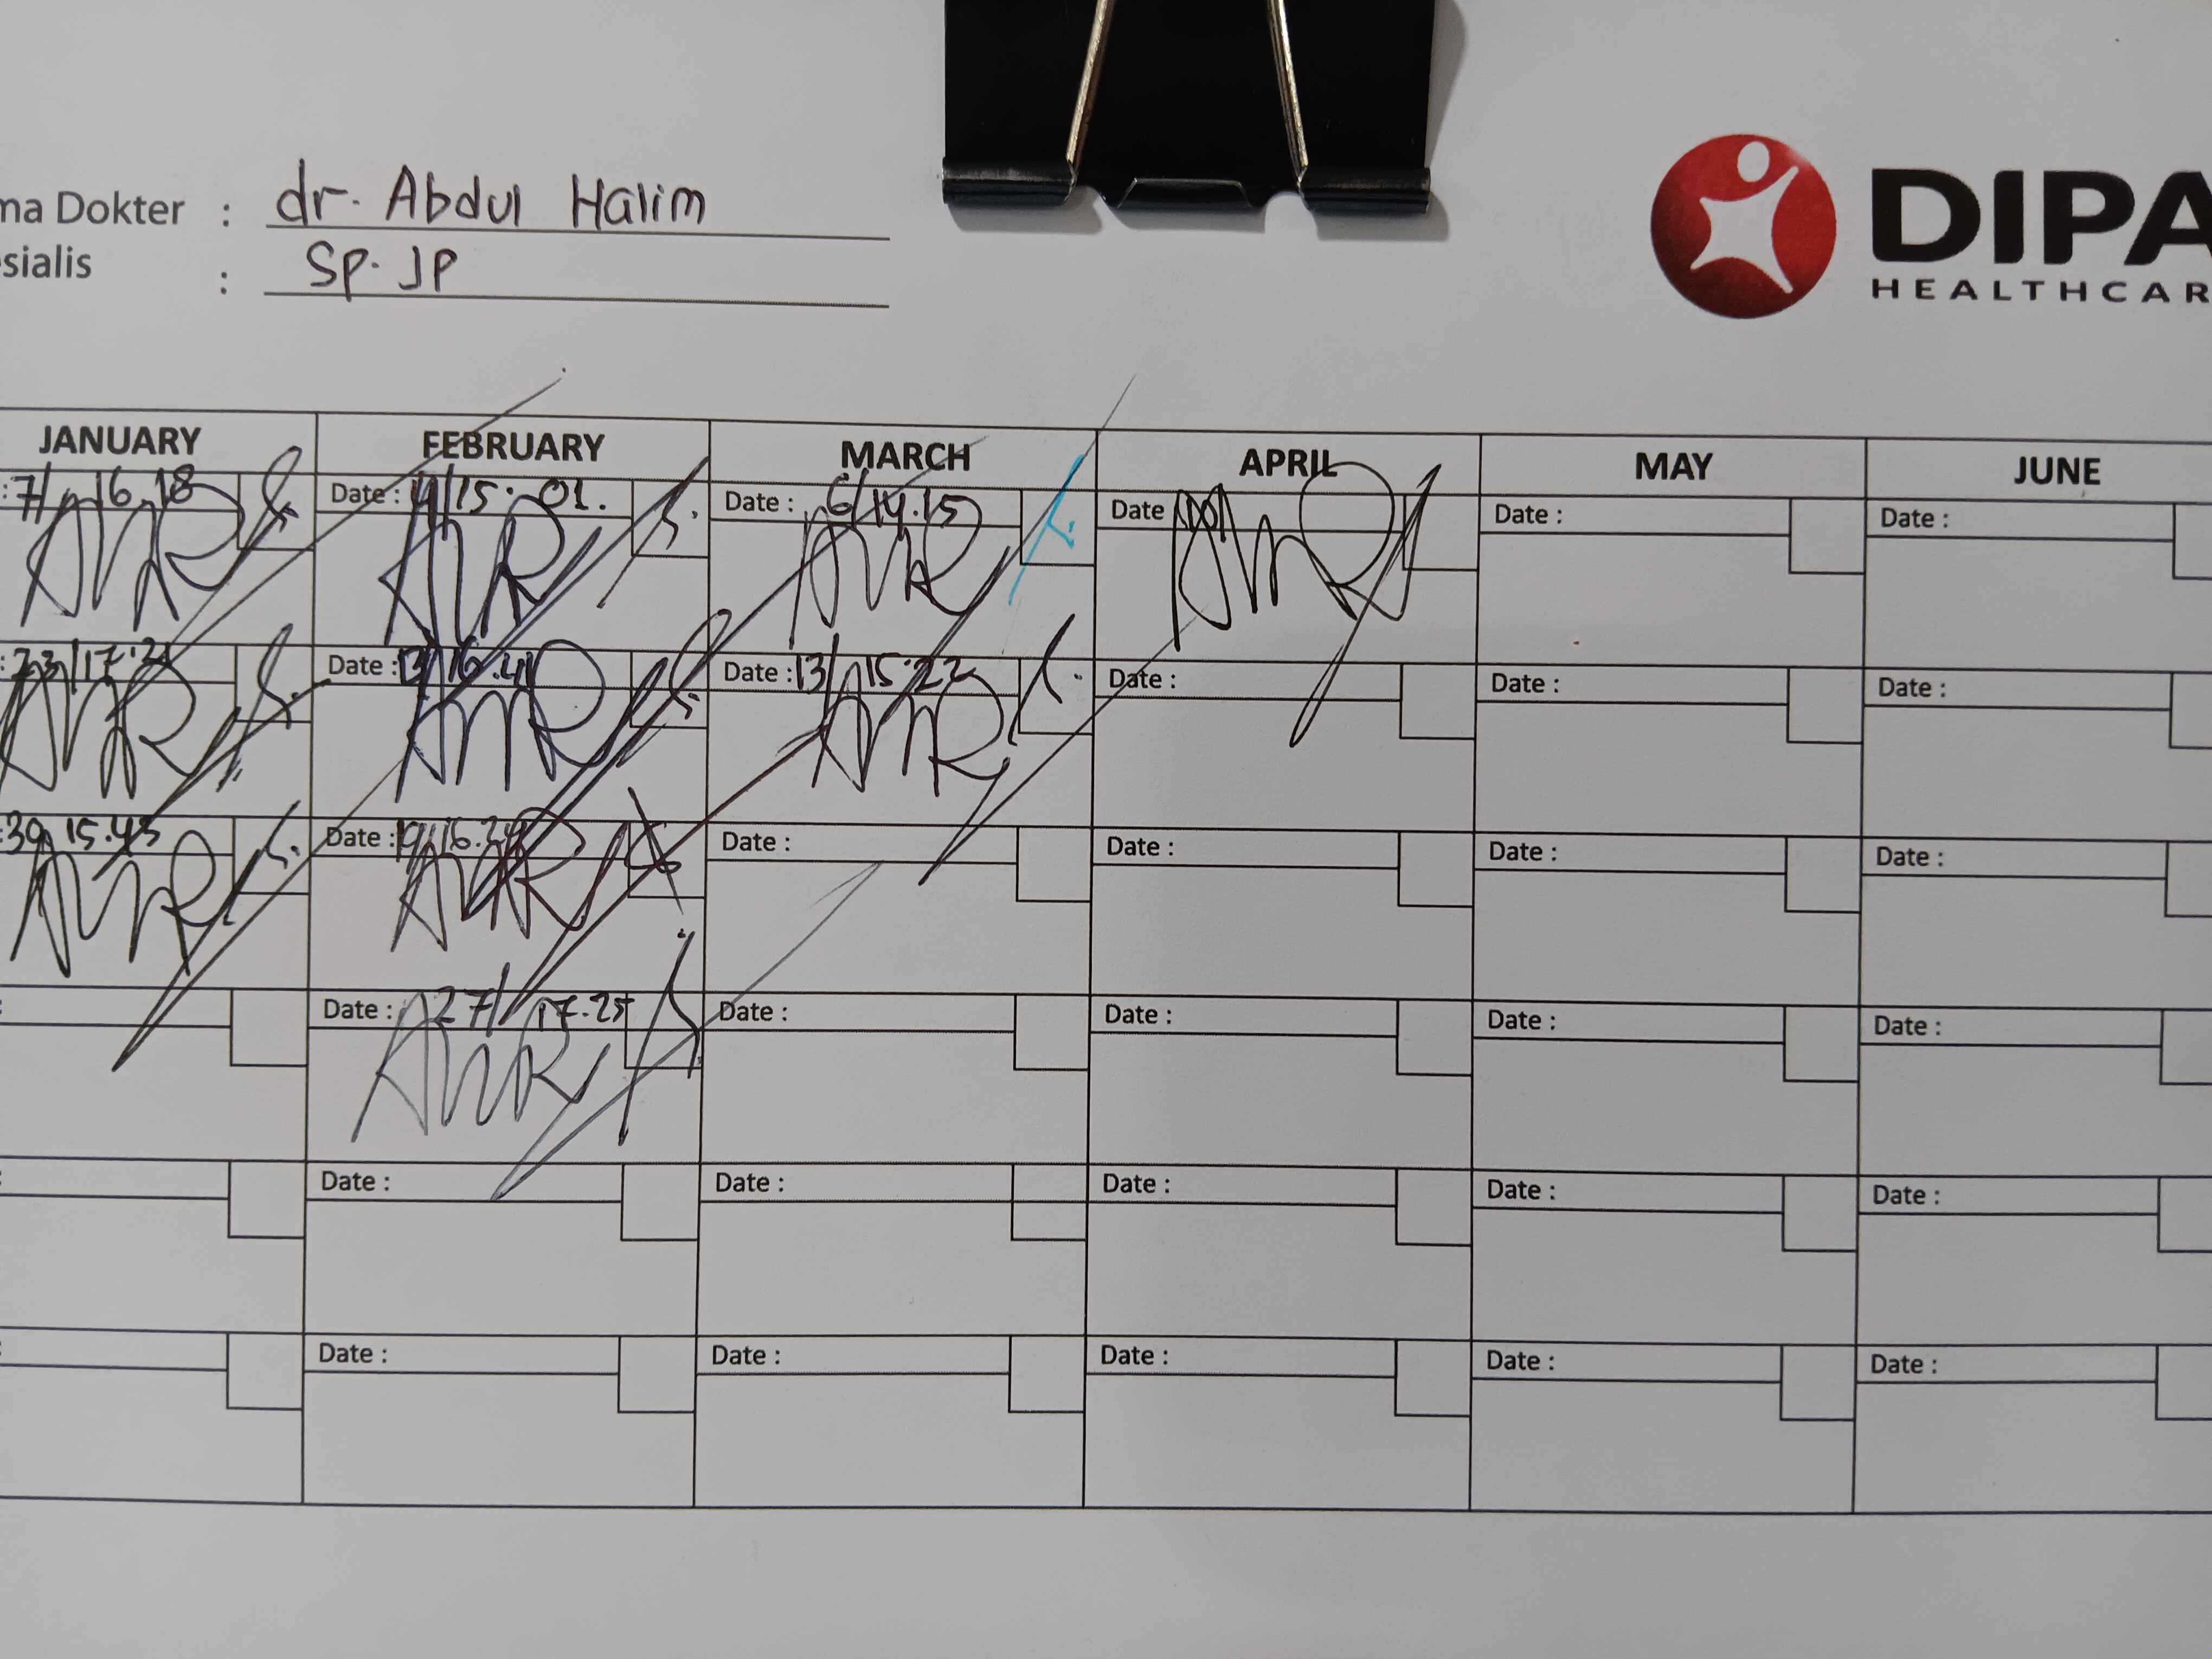 ma Dokter : dr. Abdul Halim
sialis : Sp. JP
DIPA
HEALTHCAR
JANUARY FEBRUARY MARCH APRIL MAY JUNE
: 7/ 16.18 Date : 15.01. Date : 6/14.15 Date Date : Date :
: 23/17.2 Date : 13/16.41 Date : 13/ 15.22 Date : Date : Date :
: 30 15.45 Date : 19/16. Date : Date : Date : Date :
: Date : 27/ 17.25 Date : Date : Date : Date :
: Date : Date : Date : Date : Date :
: Date : Date : Date : Date : Date :